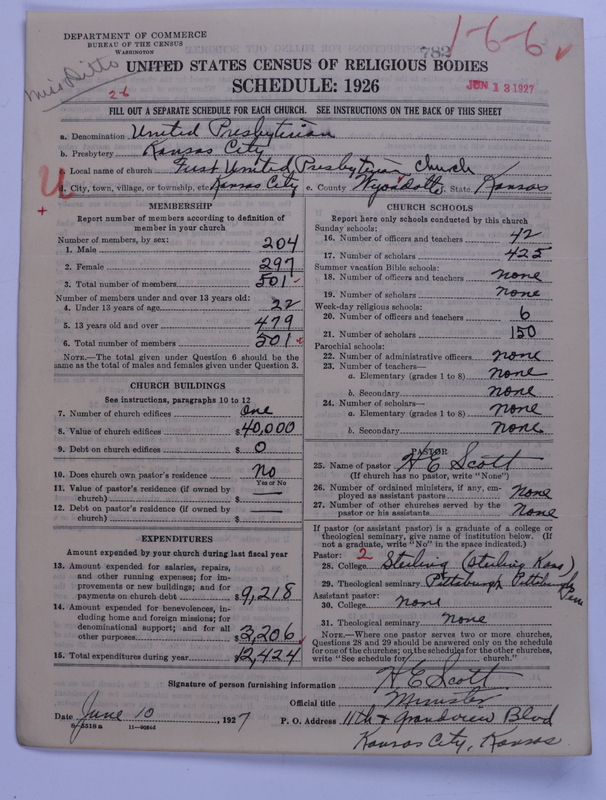 DEPARTMENT OF COMMERCE
BUREAU OF THE CENSUS
WASHINGTON
Miss Ditto
782
1-6-6
UNITED STATES CENSUS OF RELIGIOUS BODIES
SCHEDULE: 1926
JUN 13 1927
2-6
FILL OUT A SEPARATE SCHEDULE FOR EACH CHURCH. SEE INSTRUCTIONS ON THE BACK OF THIS SHEET
a. Denomination United Presbyterian
b. Presbytery Kansas City
c. Local name of church First United Presbyterian Church
U
d. City, town, village, or township, etc. Kansas City e. County Wyandotte f. State Kansas
MEMBERSHIP
Report number of members according to definition of member in your church
Number of members, by sex:
1. Male 204
2. Female 297
3. Total number of members 501
Number of members under and over 13 years old:
4. Under 13 years of age 22
5. 13 years old and over 479
6. Total number of members 501
NOTE.—The total given under Question 6 should be the
same as the total of males and females given under Question 3.
CHURCH BUILDINGS
See instructions, paragraphs 10 to 12
7. Number of church edifices One
8. Value of church edifices $40,000
9. Debt on church edifices $ 0
10. Does church own pastor's residence No
Yes or No
11. Value of pastor's residence (if owned by
church) $ —
12. Debt on pastor's residence (if owned by
church) $ —
EXPENDITURES
Amount expended by your church during last fiscal year
13. Amount expended for salaries, repairs,
and other running expenses; for im-
provements or new buildings; and for
payments on church debt $9,218
14. Amount expended for benevolences, in-
cluding home and foreign missions; for
denominational support; and for all
other purposes $3,206
15. Total expenditures during year 12,424
CHURCH SCHOOLS
Report here only schools conducted by this church
Sunday schools:
16. Number of officers and teachers 42
17. Number of scholars 425
Summer vacation Bible schools:
18. Number of officers and teachers none
19. Number of scholars none
Week-day religious schools:
20. Number of officers and teachers 6
21. Number of scholars 150
Parochial schools:
22. Number of administrative officers none
23. Number of teachers—
a. Elementary (grades 1 to 8) none
b. Secondary none
24. Number of scholars—
a. Elementary (grades 1 to 8) none
b. Secondary none
PASTOR
25. Name of pastor H E Scott
(If church has no pastor, write "None")
26. Number of ordained ministers, if any, em-
ployed as assistant pastors none
27. Number of other churches served by the
pastor or his assistants none
If pastor (or assistant pastor) is a graduate of a college or
theological seminary, give name of institution below. (If
not a graduate, write "No" in the space indicated.)
Pastor: 2
28. College Sterling (Sterling Kans)
29. Theological seminary Pittsburgh Pittsburgh Penn
Assistant pastor:
30. College none
31. Theological seminary none
NOTE.—Where one pastor serves two or more churches,
Questions 28 and 29 should be answered only on the schedule
for one of the churches; on the schedules for the other churches,
write "See schedule for church."
Signature of person furnishing information H E Scott
Official title Minister
Date June 10, 1927 P. O. Address 11th & Grandview Blvd
8-5518a
Kansas City, Kansas